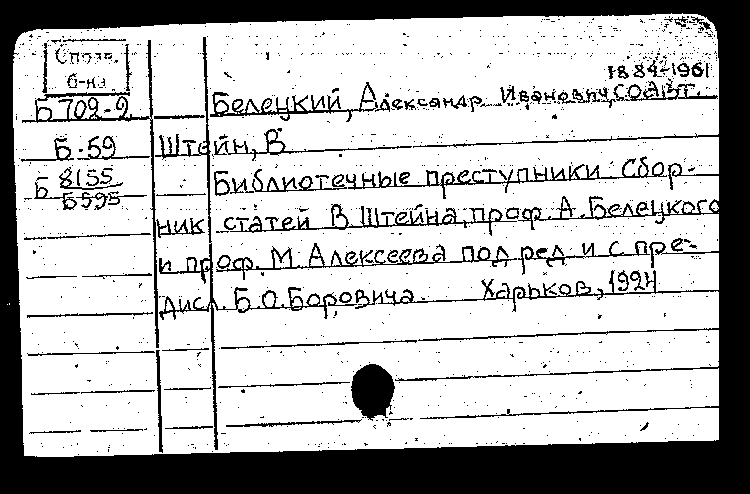 Справ.
б-ка
1884-1961
Б 702-2
Белецкий, Александр Иванович, соавт.
Б-59
Штейн, В
Б 8155
Б595
Библиотечные преступники Сбор-
ник статей В. Штейна, проф. А. Белецкого
и проф. М. Алексеева под ред и с пре-
дисл. Б.О. Боровича. Харьков, 1924